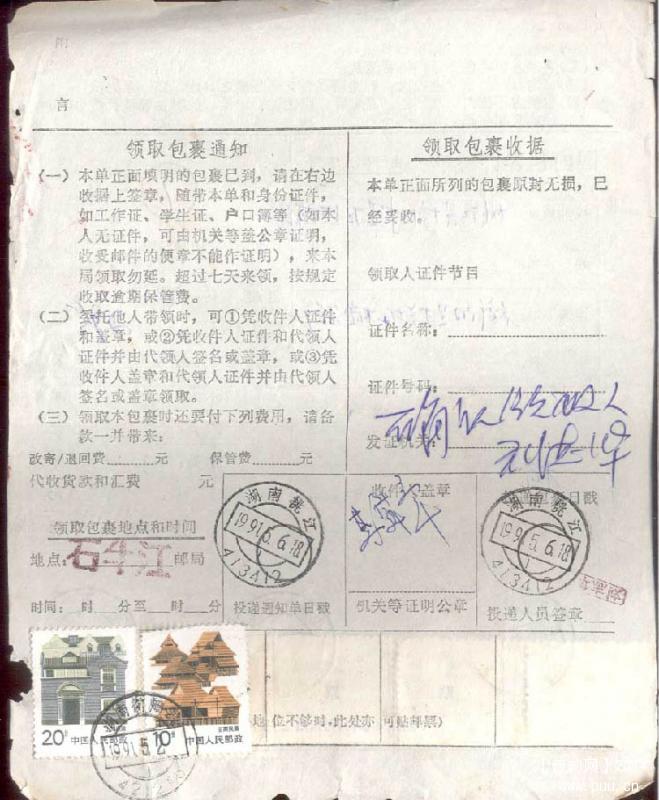 言
领取包裹通知
(一) 本单正面填明的包裹已到,请在右边
收据上签章,随带本单和身份证件,
如工作证、学生证、户口簿等(如本
人无证件,可由机关等盖公章证明,
收受邮件的便章不能作证明),来本
局领取勿延。超过七天来领,按规定
收取逾期保管费。
(二) 委托他人带领时,可①凭收件人证件
和盖章,或②凭收件人证件和代领人
证件并由代领人签名或盖章,或③凭
收件人盖章和代领人证件并由代领人
签名或盖章领取。
(三) 领取本包裹时还要付下列费用,请备
款一并带来:
改寄/退回费 元 保管费 元
代收货款和汇费 元
领取包裹地点和时间
地点:石牛江邮局
时间: 时 分至 时 分
领取包裹收据
本单正面所列的包裹原封无损,已
经妥收。
领取人证件节目
证件名称:
证件号码:
发证机关:
湖南桃江
1991.5.6.18
413412
投递通知单日戳
收件人盖章
机关等证明公章
日戳
湖南桃江
1991.5.6.18
413412
投递人员签章
20分 中国人民邮政
10分 中国人民邮政
湖南
1991.5.2
位不够时,此处亦可贴邮票)
www.puu.cn